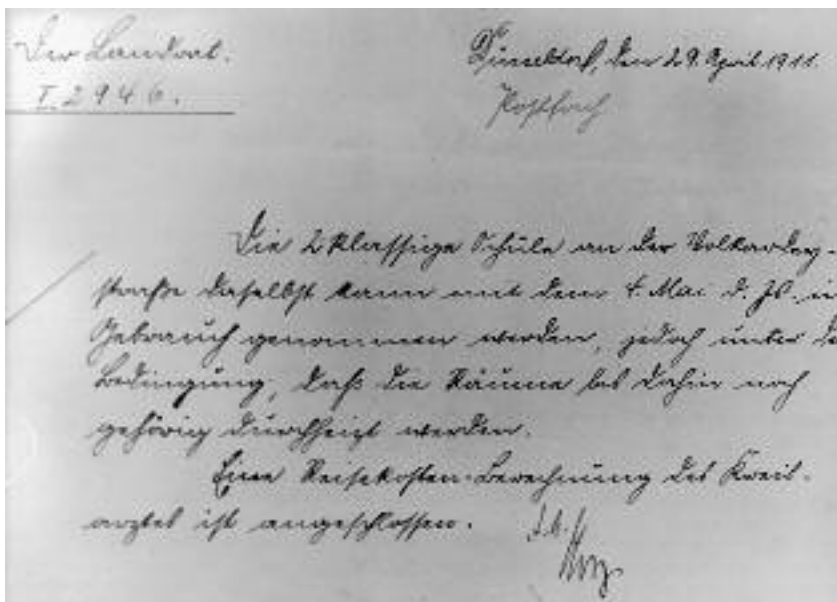 Der Landrat.
I. 2946.
Düsseldorf, den 29. April 1911.
Postfach
Die 2 klassige Schule an der Volkardey-
straße daselbst kann mit dem 4. Mai d. Js. in
Gebrauch genommen werden, jedoch unter de
Bedingung, daß die Räume bis dahin noch
gehörig durchheizt werden.
Eine Reisekosten-Berechnung des Kreis-
arztes ist angeschlossen.